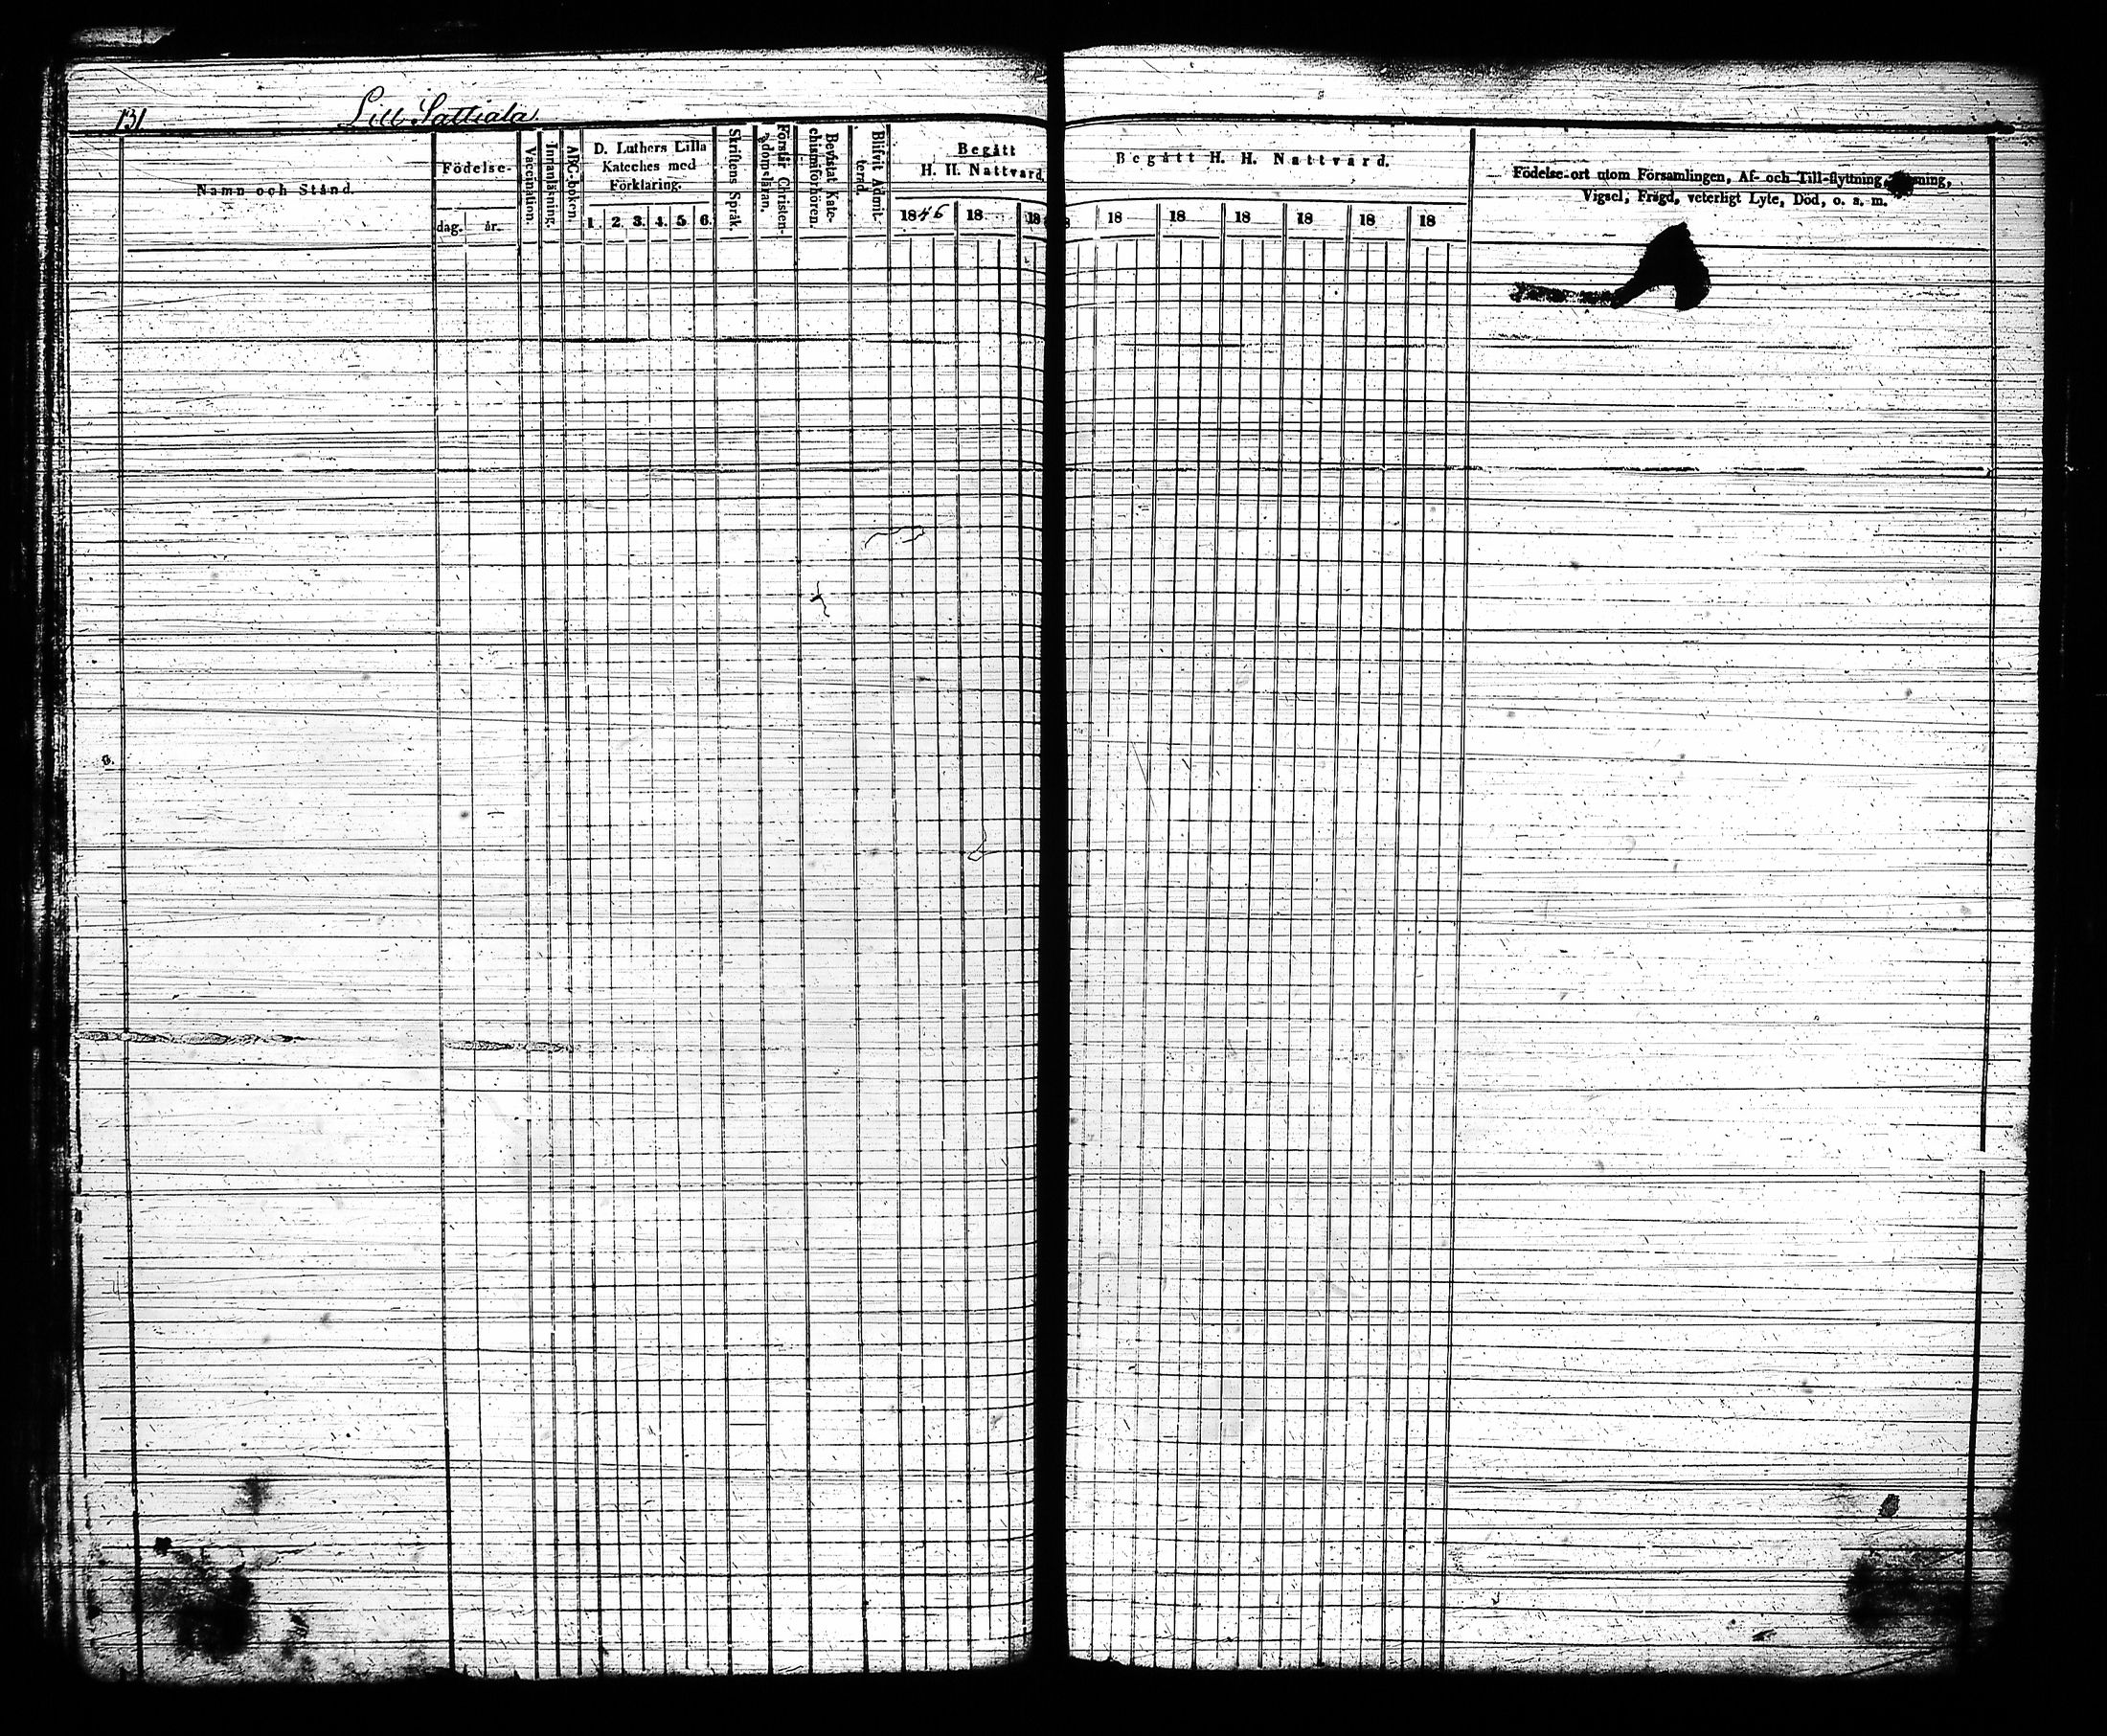 131.
Lill Sattiala.
Namn och Stånd.
Födelse-
dag. år.
Vaccination.
Innanläsning.
ABC-boken.
D. Luthers Lilla
Kateches med
Förklaring.
1. 2. 3. 4. 5 6.
Skriftens Språk.
Förstår Christen-
domsläran.
Bevistat Kate-
chismiförhören.
Blifvit Admit-
terad.
Begått
H. H. Nattvard.
1846 18 18
Begått H. H. Nattvard.
18 18 18 18 18 18
Födelse-ort utom Församlingen, Af- och Till-flyttning,
Vigsel, Frägd, veterligt Lyte, Död, o. s. m.